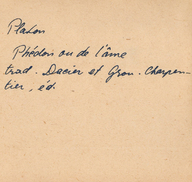 Platon
Phédon ou de l'âme
trad. Dacier et Grou. Charpen-
tier, éd.